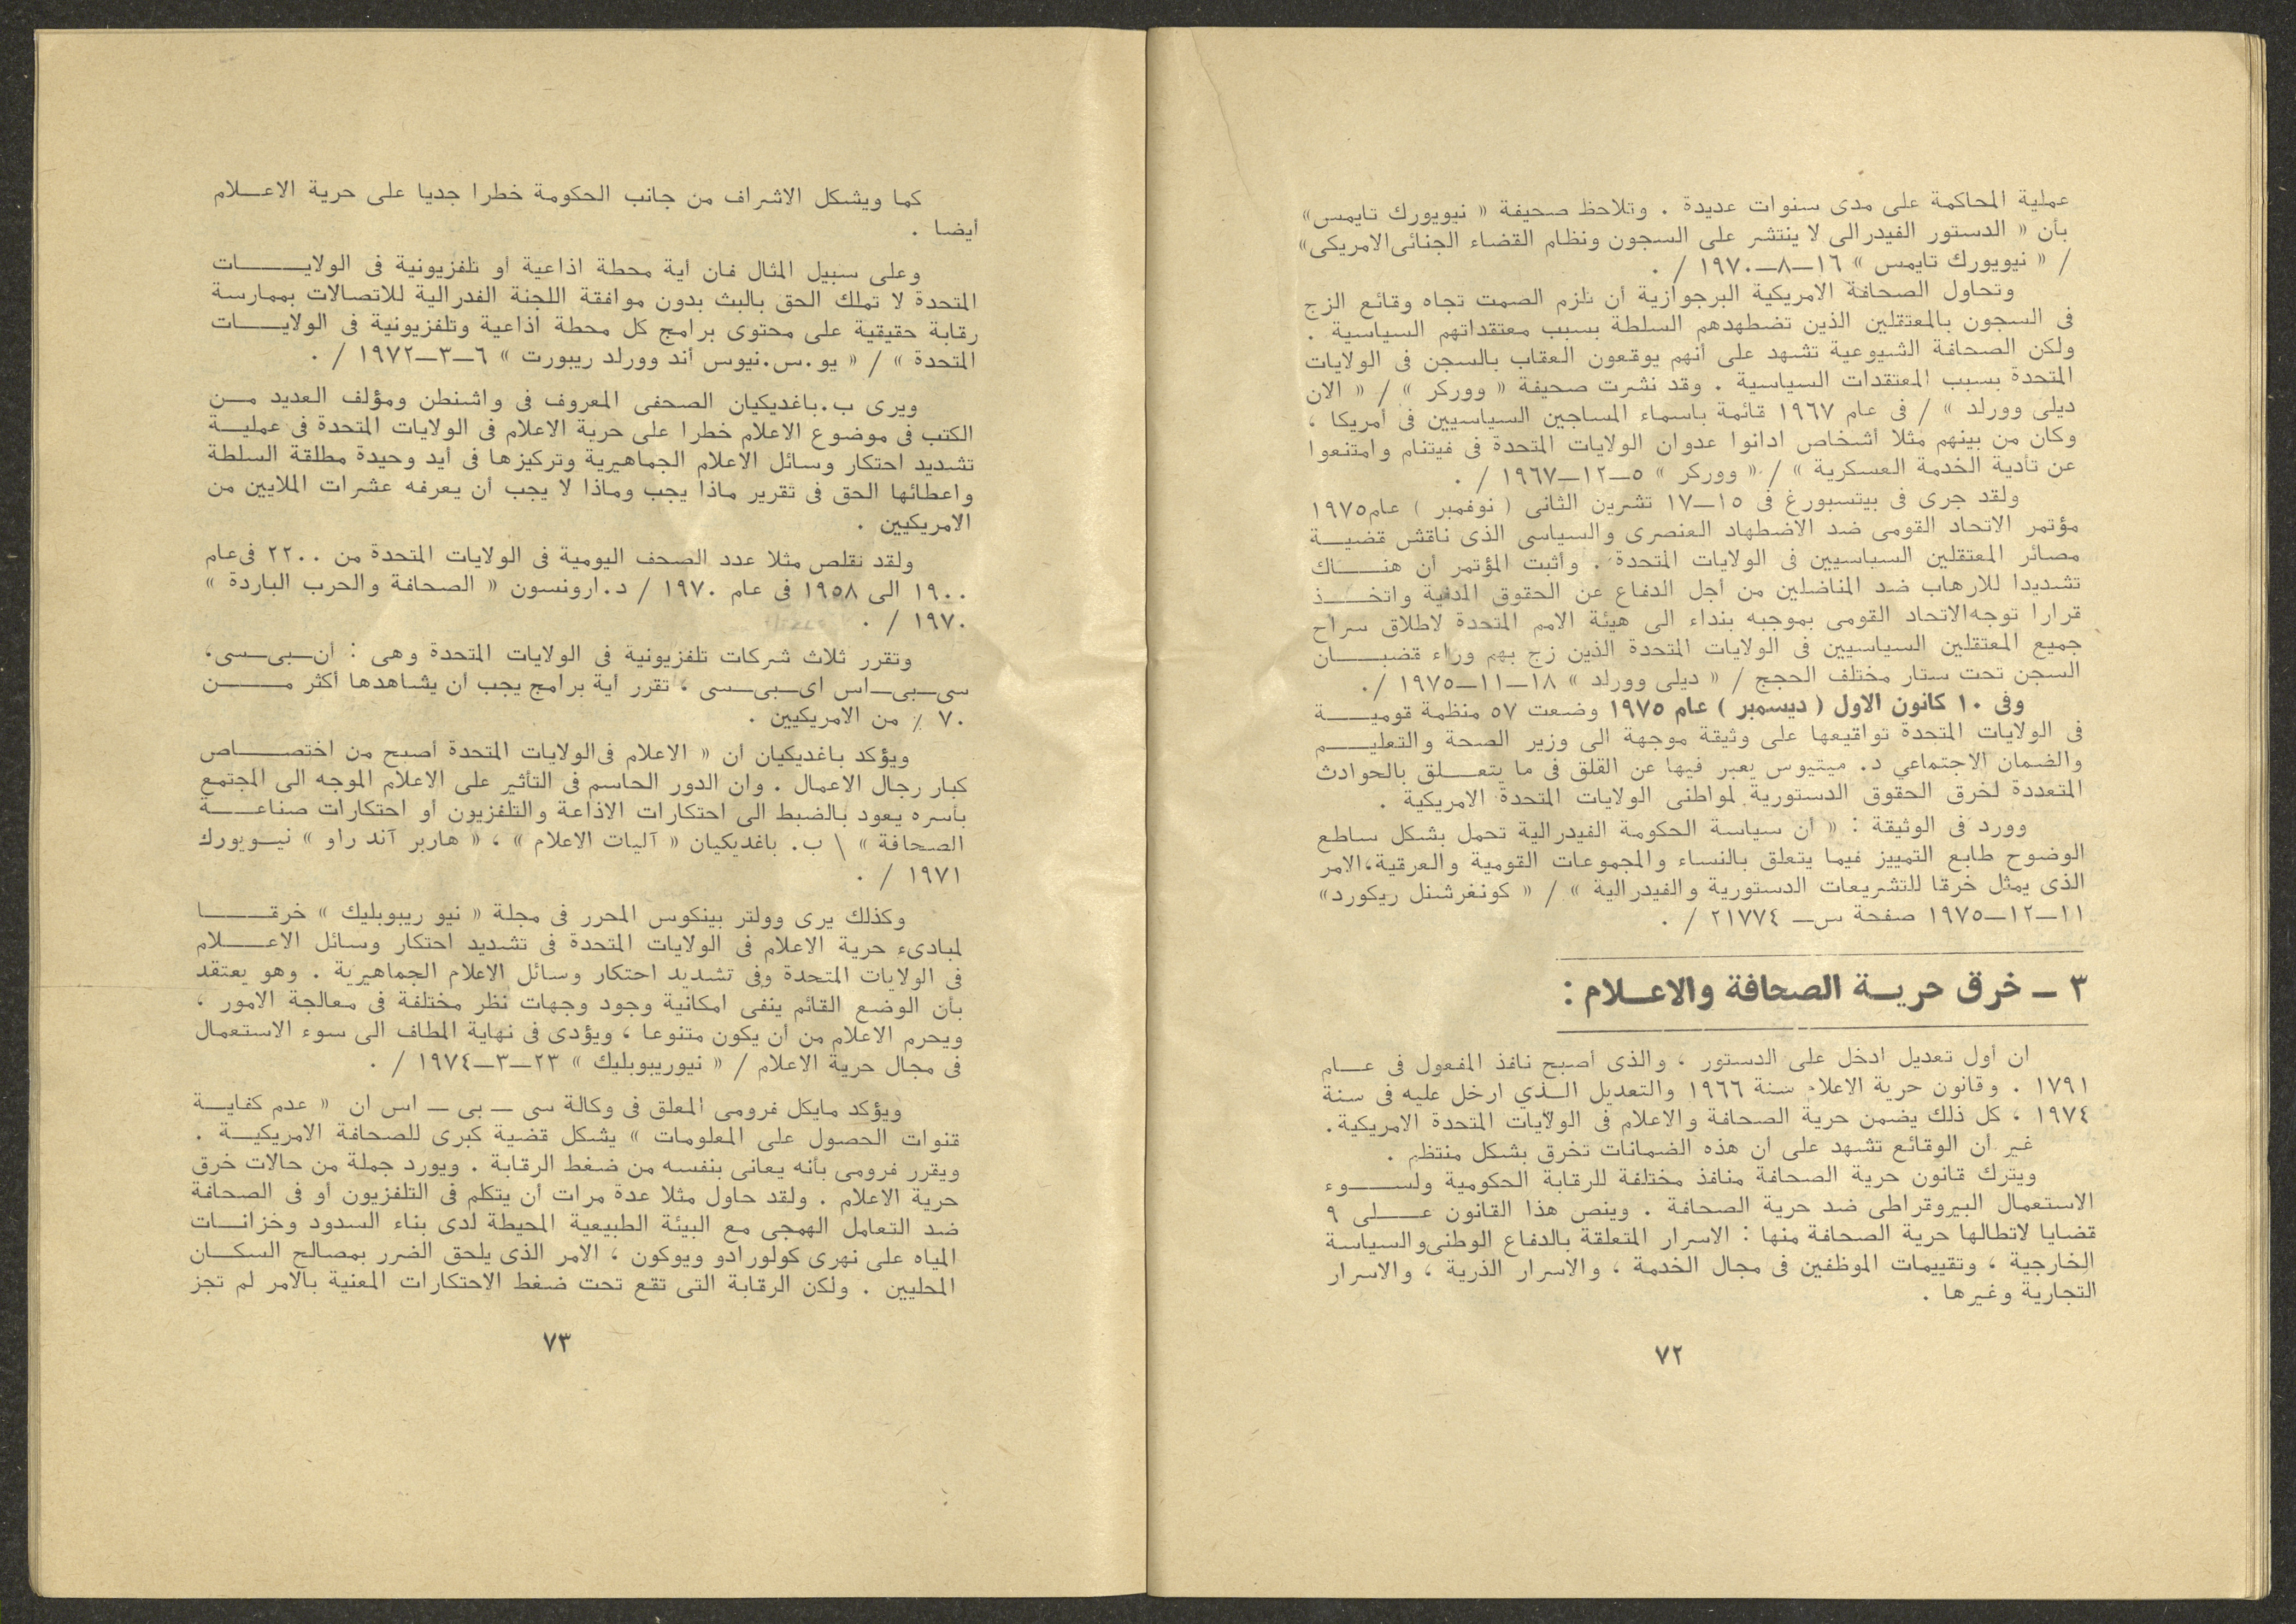 عملية المحاكمة على مدى سنوات عديدة . وتلاحظ صحيفة « نيويورك تايمس»
بأن « الدستور الفيدرالى لا ينتشر على السجون ونظام القضاء الجنائى الامريكى»
/ « نيويورك تايمس » ١٦ــ٨ــ١٩٧٠ / .
وتحاول الصحافة الامريكية البرجوازية أن تلزم الصمت تجاه وقائع الزج
فى السجون بالمعتقلين الذين تضطهدهم السلطة بسبب معتقداتهم السياسية .
ولكن الصحافة الشيوعية تشهد على أنهم يوقعون العقاب بالسجن فى الولايات
المتحدة بسبب المعتقدات السياسية . وقد نشرت صحيفة « ووركر » / « الان
ديلى وورلد » / فى عام ١٩٦٧ قائمة باسماء المساجين السياسيين فى أمريكا ،
وكان من بينهم مثلا أشخاص ادانوا عدوان الولايات المتحدة فى فيتنام وامتنعوا
عن تأدية الخدمة العسكرية » / « ووركر » ٥ــ١٢ــ١٩٦٧ / .
ولقد جرى فى بيتسبورغ فى ١٥ــ١٧ تشرين الثانى ( نوفمبر ) عام١٩٧٥
مؤتمر الاتحاد القومى ضد الاضطهاد العنصرى والسياسى الذى ناقش قضيـــة
مصائر المعتقلين السياسيين فى الولايات المتحدة . وأثبت المؤتمر أن هنــــاك
تشديدا للارهاب ضد المناضلين من أجل الدفاع عن الحقوق المدنية واتخـــذ
قرارا توجه الاتحاد القومى بموجبه بنداء الى هيئة الامم المتحدة لاطلاق سراح
جميع المعتقلين السياسيين فى الولايات المتحدة الذين زج بهم وراء قضبــــان
السجن تحت ستار مختلف الحجج / « ديلى وورلد » ١٨ــ١١ــ١٩٧٥ / .
وفى ١٠ كانون الاول ( ديسمبر ) عام ١٩٧٥ وضعت ٥٧ منظمة قوميـــة
فى الولايات المتحدة تواقيعها على وثيقة موجهة الى وزير الصحة والتعليـــم
والضمان الاجتماعي د. ميتيوس يعبر فيها عن القلق فى ما يتعــلق بالحوادث
المتعددة لخرق الحقوق الدستورية لمواطنى الولايات المتحدة الامريكية .
وورد فى الوثيقة : « أن سياسة الحكومة الفيدرالية تحمل بشكل ساطع
الوضوح طابع التمييز فيما يتعلق بالنساء والمجموعات القومية والعرقية،الامر
الذى يمثل خرقا للتشريعات الدستورية والفيدرالية » / « كونغرشنل ريكورد»
١١ــ١٢ــ١٩٧٥ صفحة س ــ ٢١٧٧٤ / .
٣ ــ خرق حريــة الصحافة والاعــلام :
ان أول تعديل ادخل على الدستور ، والذى أصبح نافذ المفعول فى عــام
١٧٩١ . وقانون حرية الاعلام سنة ١٩٦٦ والتعديل الــذي ارخل عليه فى سنة
١٩٧٤ ، كل ذلك يضمن حرية الصحافة والاعلام فى الولايات المتحدة الامريكية.
غير أن الوقائع تشهد على ان هذه الضمانات تخرق بشكل منتظم .
ويترك قانون حرية الصحافة منافذ مختلفة للرقابة الحكومية ولســـوء
الاستعمال البيروقراطى ضد حرية الصحافة . وينص هذا القانون عـــلى ٩
قضايا لاتطالها حرية الصحافة منها : الاسرار المتعلقة بالدفاع الوطنى والسياسة
الخارجية ، وتقييمات الموظفين فى مجال الخدمة ، والاسرار الذرية ، والاسرار
التجارية وغيرها .
٧٢
كما ويشكل الاشراف من جانب الحكومة خطرا جديا على حرية الاعــلام
أيضا .
وعلى سبيل المثال فان أية محطة اذاعية أو تلفزيونية فى الولايــــــات
المتحدة لا تملك الحق بالبث بدون موافقة اللجنة الفدرالية للاتصالات بممارسة
رقابة حقيقية على محتوى برامج كل محطة اذاعية وتلفزيونية فى الولايــــات
المتحدة » / « يو.س.نيوس أند وورلد ريبورت » ٦ــ٣ــ١٩٧٢ / .
ويرى ب.باغديكيان الصحفى المعروف فى واشنطن ومؤلف العديد مــن
الكتب فى موضوع الاعلام خطرا على حرية الاعلام فى الولايات المتحدة فى عمليــة
تشديد احتكار وسائل الاعلام الجماهيرية وتركيزها فى أيد وحيدة مطلقة السلطة
واعطائها الحق فى تقرير ماذا يجب وماذا لا يجب أن يعرفه عشرات الملايين من
الامريكيين .
ولقد تقلص مثلا عدد الصحف اليومية فى الولايات المتحدة من ٢٢٠٠ فى عام
١٩٠٠ الى ١٩٥٨ فى عام ١٩٧٠ / د.ارونسون « الصحافة والحرب الباردة »
١٩٧٠ / .
وتقرر ثلاث شركات تلفزيونية فى الولايات المتحدة وهى : أن‍ــبى‍ــسى،
سى‍ــبى‍ــاس اى‍ــبى‍ــسى ، تقرر أية برامج يجب أن يشاهدها أكثر مــــن
٧٠ ٪ من الامريكيين .
ويؤكد باغديكيان أن « الاعلام فى الولايات المتحدة أصبح من اختصــــاص
كبار رجال الاعمال . وان الدور الحاسم فى التأثير على الاعلام الموجه الى المجتمع
بأسره يعود بالضبط الى احتكارات الاذاعة والتلفزيون أو احتكارات صناعـــة
الصحافة » \ ب. باغديكيان « آليات الاعلام » ، « هاربر آند راو » نيــويورك
١٩٧١ / .
وكذلك يرى وولتر بينكوس المحرر فى مجلة « نيو ريبوبليك » خرقــــا
لمبادىء حرية الاعلام فى الولايات المتحدة فى تشديد احتكار وسائل الاعــــلام
فى الولايات المتحدة وفى تشديد احتكار وسائل الاعلام الجماهيرية . وهو يعتقد
بأن الوضع القائم ينفى امكانية وجود وجهات نظر مختلفة فى معالجة الامور ،
ويحرم الاعلام من أن يكون متنوعا ، ويؤدى فى نهاية المطاف الى سوء الاستعمال
فى مجال حرية الاعلام / « نيوريبوبليك » ٢٣ــ٣ــ١٩٧٤ / .
ويؤكد مايكل فرومى المعلق فى وكالة سى ــ بى ــ اس ان « عدم كفايــة
قنوات الحصول على المعلومات » يشكل قضية كبرى للصحافة الامريكيــة .
ويقرر فرومى بأنه يعانى بنفسه من ضغط الرقابة . ويورد جملة من حالات خرق
حرية الاعلام . ولقد حاول مثلا عدة مرات أن يتكلم فى التلفزيون أو فى الصحافة
ضد التعامل الهمجى مع البيئة الطبيعية المحيطة لدى بناء السدود وخزانــات
المياه على نهرى كولورادو ويوكون ، الامر الذى يلحق الضرر بمصالح السكــان
المحليين . ولكن الرقابة التى تقع تحت ضغط الاحتكارات المعنية بالامر لم تجز
٧٣